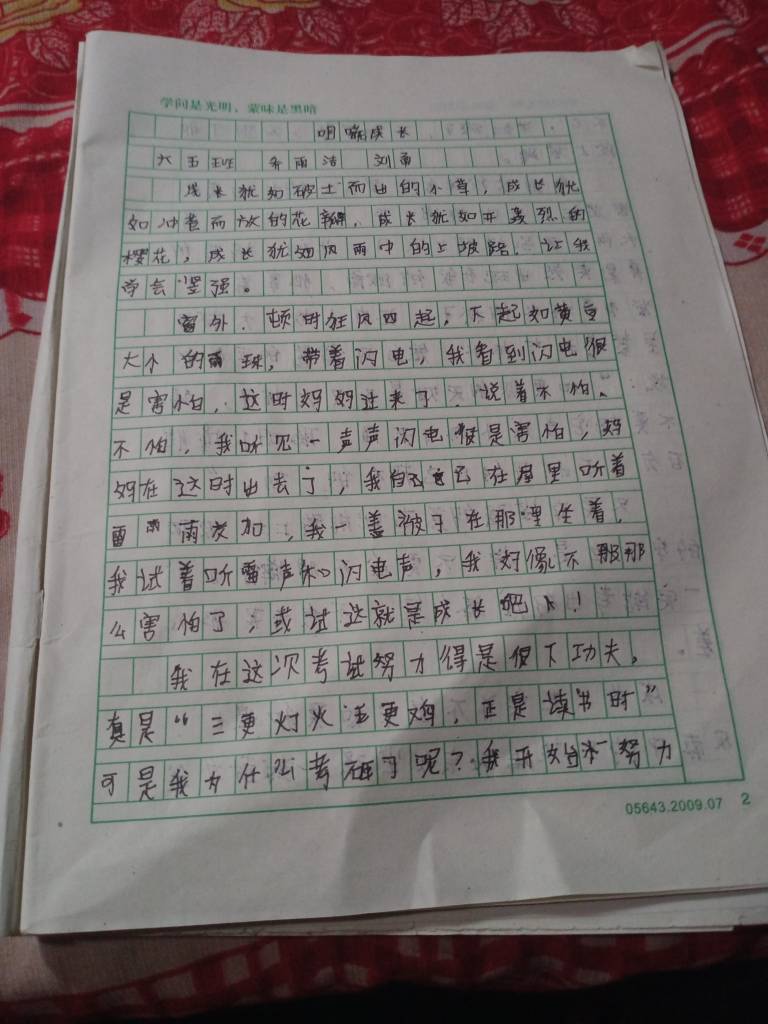 学问是光明、蒙昧是黑暗
成长
六五班 乔雨洁 刘勇
成长犹如破土而出的小草，成长犹
如冲苞而放的花瓣，成长犹如开轰烈的
樱花，成长犹如风雨中的上坡路，让我
学会坚强。
窗外，顿时狂风四起，下起如黄豆
大小的雨珠，带着闪电，我看到闪电很
是害怕，这时妈妈过来了，说着不怕、
不怕，我听见一声声闪电很是害怕，妈
妈在这时出去了，我自己在屋里听着
雷雨交加，我一盖被子在那里坐着，
我试着听雷声和闪电声，我好像不那那
么害怕了，或试这就是成长吧！
我在这次考试努力得是很下功夫，
真是“三更灯火五更鸡，正是读书时”
可是我为什么考砸了呢？我开始不努力
05643.2009.07 2